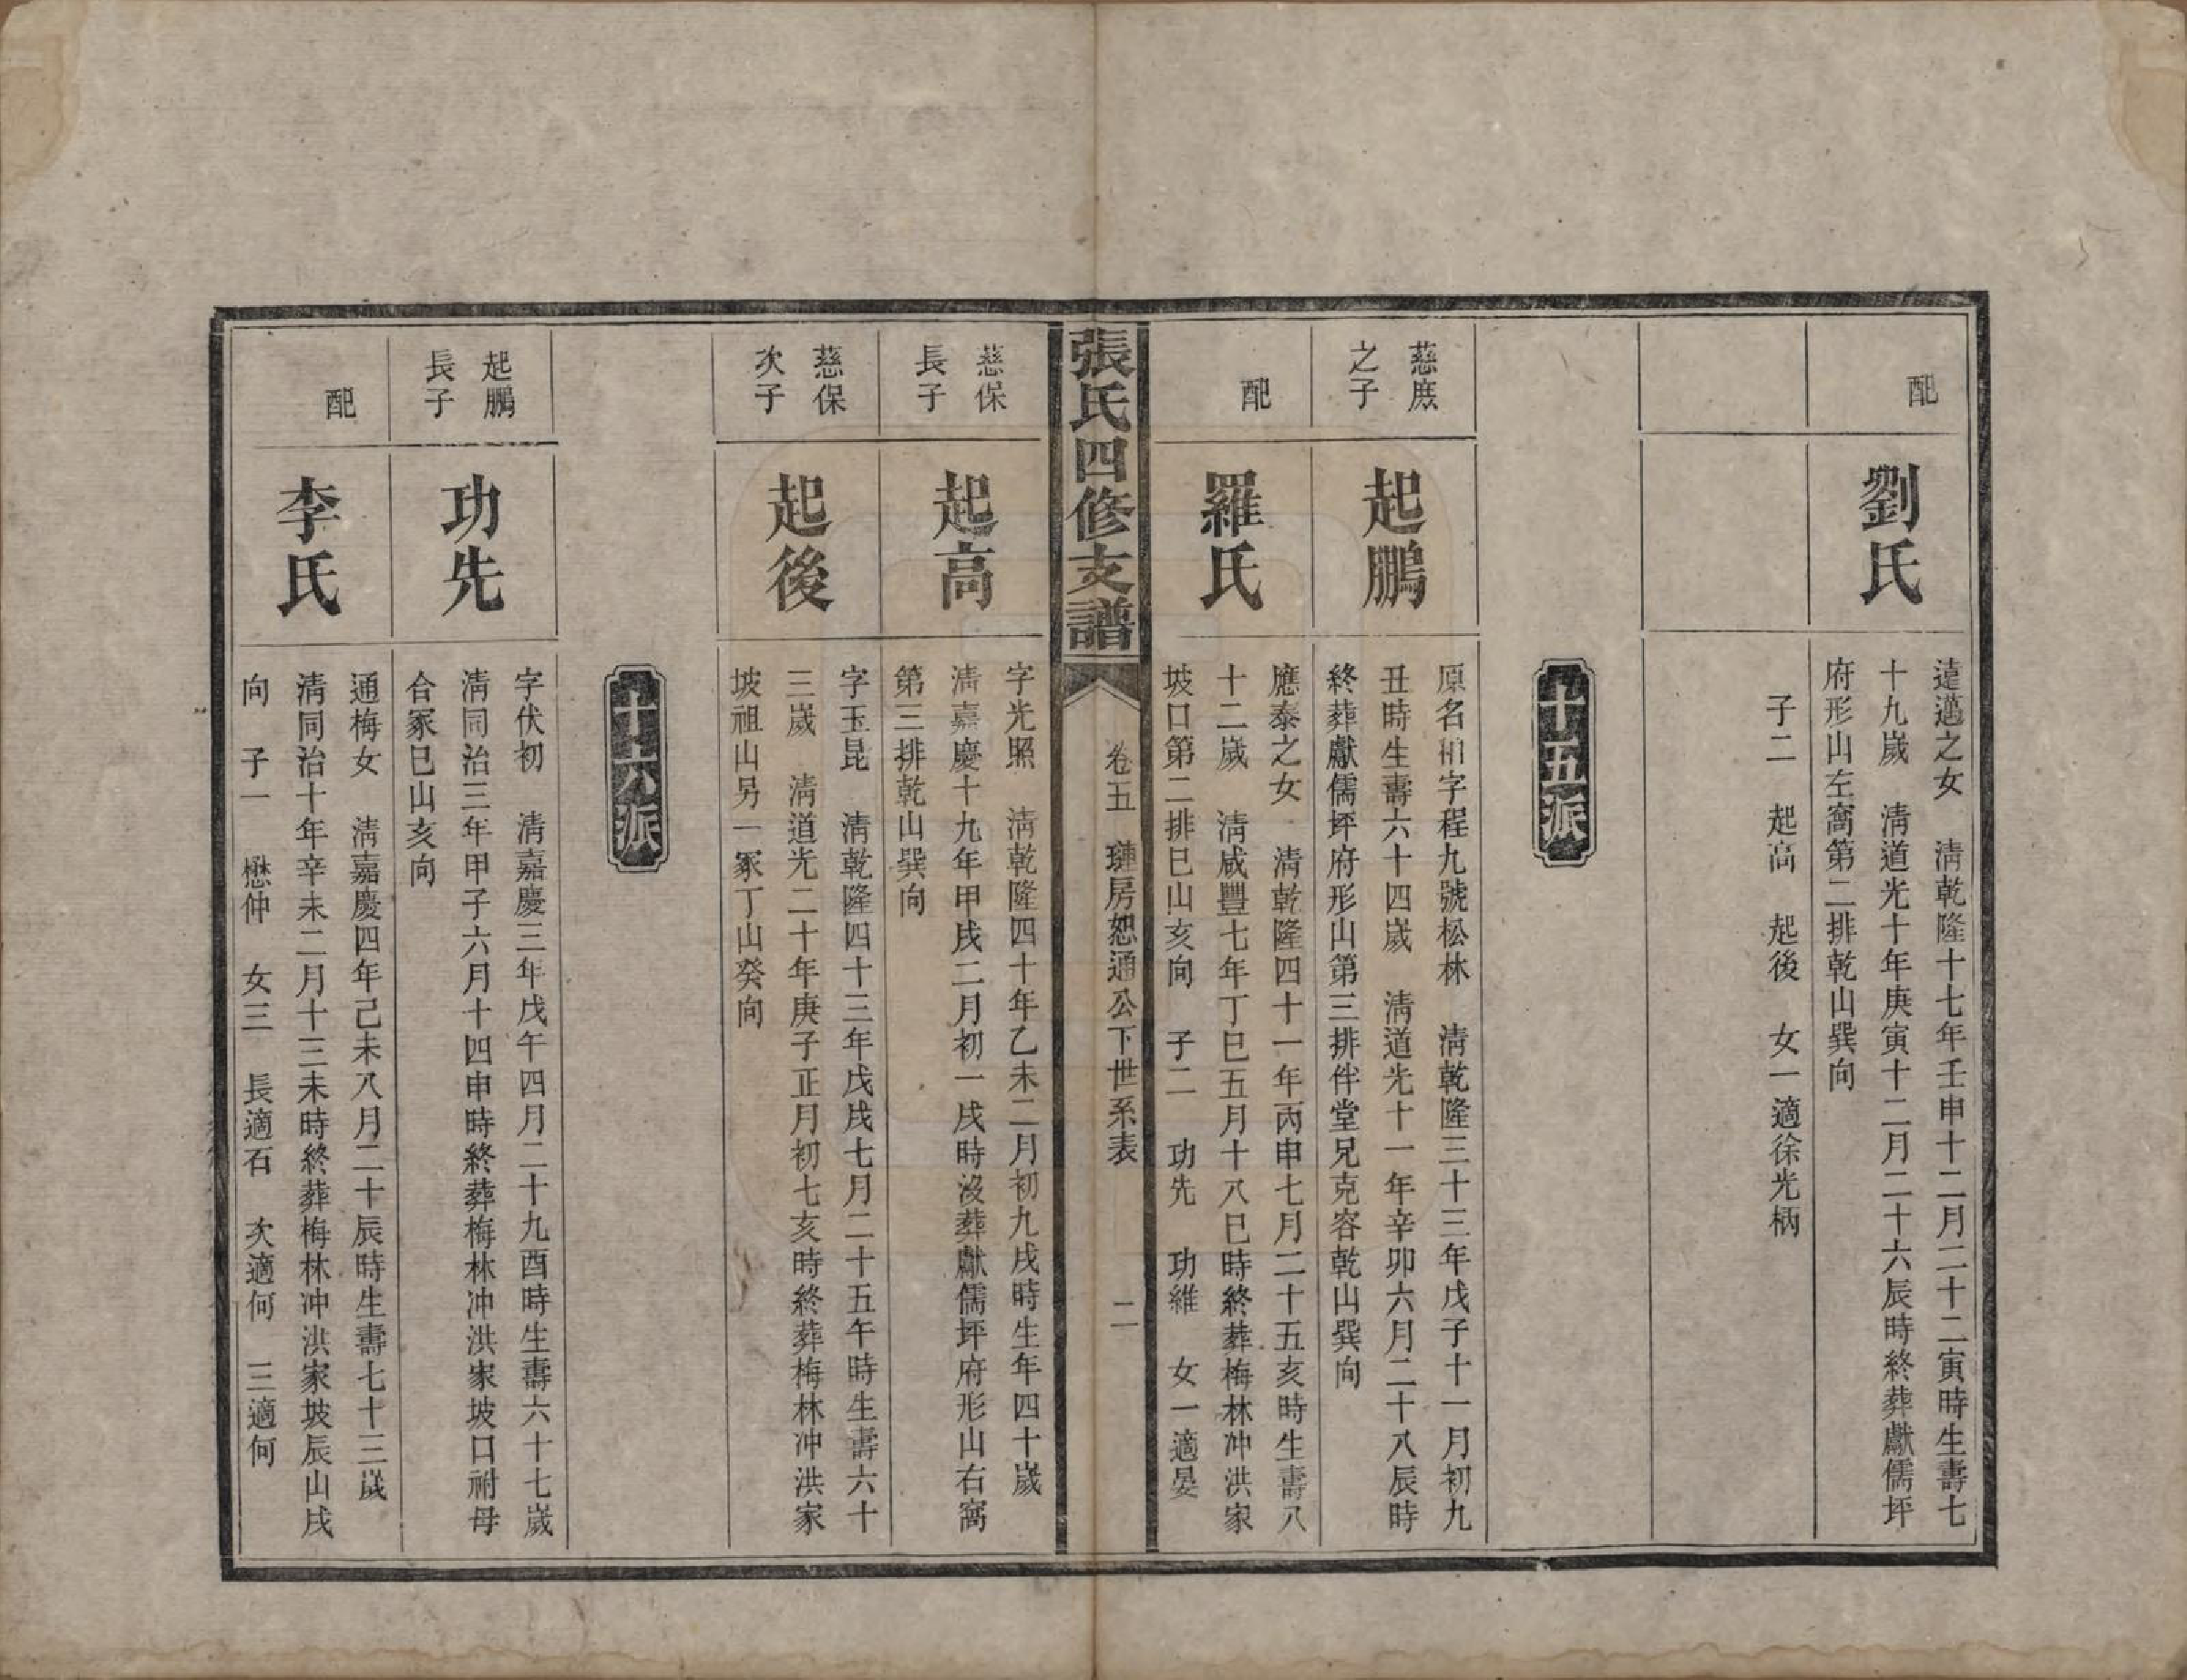 配
劉氏
遠邁之女　清乾隆十七年壬申十二月二十二寅時生壽七
十九嵗　清道光十年庚寅十二月二十六辰時終葬獻儒坪
府形山左窩第二排乾山巽向
子二　起高　起後　女一適徐光柄
十五派
慈庶
之子
起鵬
原名柏字程九號松林　清乾隆三十三年戊子十一月初九
丑時生壽六十四嵗　清道光十一年辛卯六月二十八辰時
終葬獻儒坪府形山第三排伴堂兄克容乾山巽向
配
羅氏
應泰之女　清乾隆四十一年丙申七月二十五亥時生壽八
十二嵗　清咸豐七年丁巳五月十八巳時終葬梅林冲洪家
坡口第二排巳山亥向　子二　功先　功維　女一適晏
張氏四修支譜
卷五　璉房恕通公下世系表
二
慈保
長子
起高
字光照　清乾隆四十年乙未二月初九戌時生年四十嵗
清嘉慶十九年甲戌二月初一戌時沒葬獻儒坪府形山右窩
第三排乾山巽向
慈保
次子
起後
字玉昆　清乾隆四十三年戊戌七月二十五午時生壽六十
三嵗　清道光二十年庚子正月初七亥時終葬梅林冲洪家
坡祖山另一冢丁山癸向
十六派
起鵬
長子
功先
字伏初　清嘉慶三年戊午四月二十九酉時生壽六十七嵗
清同治三年甲子六月十四申時終葬梅林冲洪家坡口祔母
合冢巳山亥向
配
李氏
通梅女　清嘉慶四年己未八月二十辰時生壽七十三嵗
清同治十年辛未二月十三未時終葬梅林冲洪家坡辰山戌
向　子一　懋仲　女三　長適石　次適何　三適何